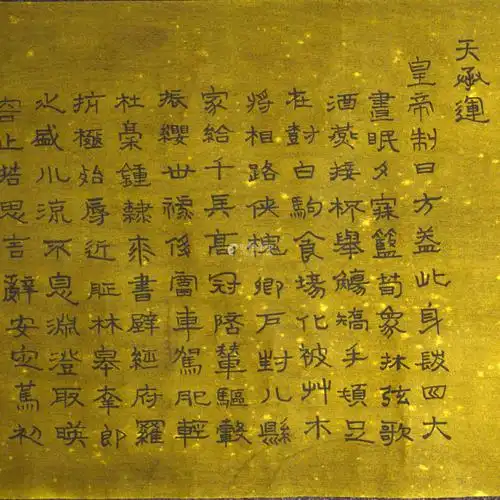 天承運
皇帝制曰方蓋此身髮四大
晝眠夕寐籃荀象床弦歌
酒燕接杯舉觴矯手頓足
在尌白駒食場化被艸木
將相路俠槐卿戶封八縣
家給千兵高冠陪輦驅轂
振纓世祿侈富車駕肥輕
杜稾鍾隸柒書壁經府羅
抗極殆辱近恥林皋幸即
之盛川流不息淵澄取暎
容止若思言辭安定篤初